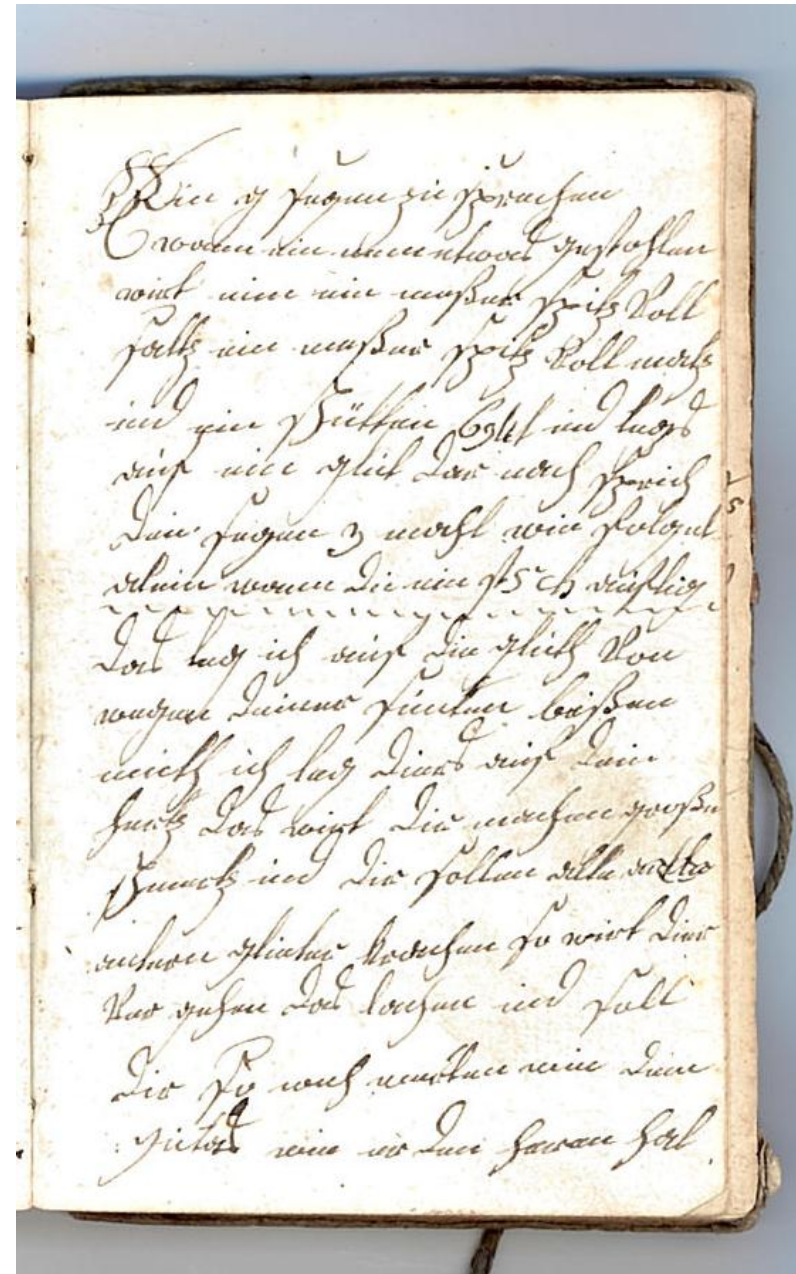 Ein g segen zu sprechen
wann ein nem etwas gestohlen
wirt nim ein meßer spitz Voll
saltz ein meßer spitz Voll
und ein und legs
auf ein glut dar nach sprich
dein segen 3 mahl wie folget
alein wann die ein
das leg ich auf die gluth Von
wegen deiner sünden
ich leg diers auf dein
hertz das wirt dir machen große
schmertz und dir sollen alle
antern glieter krachen so wirt dier
Ver gehen das lachen und soll
dir so weh werden wie dem
Jutas wie er den heren hat